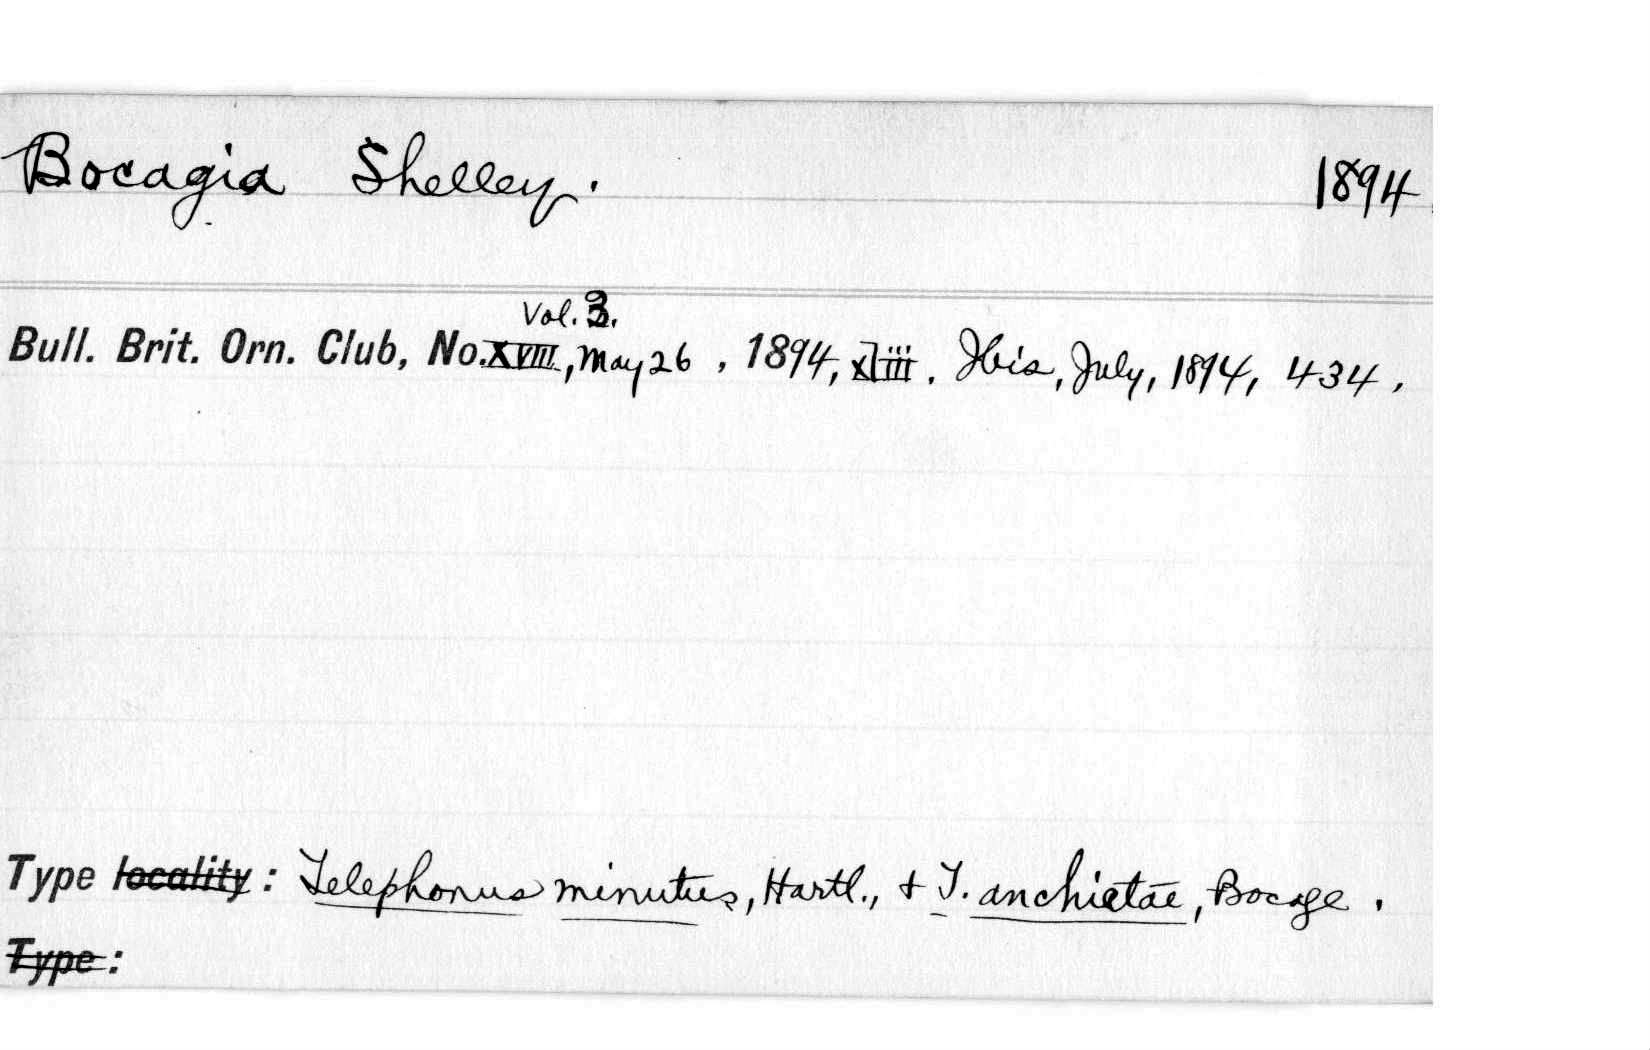 Bocagia Shelley. 1894
Vol. 3.
Bull. Brit. Orn. Club, No. XVIII, May 26, 1894, xliii. Ibis, July, 1894, 434.
Type locality: Telephonus minutus, Hartl., & T. anchietae, Bocage.
Type: